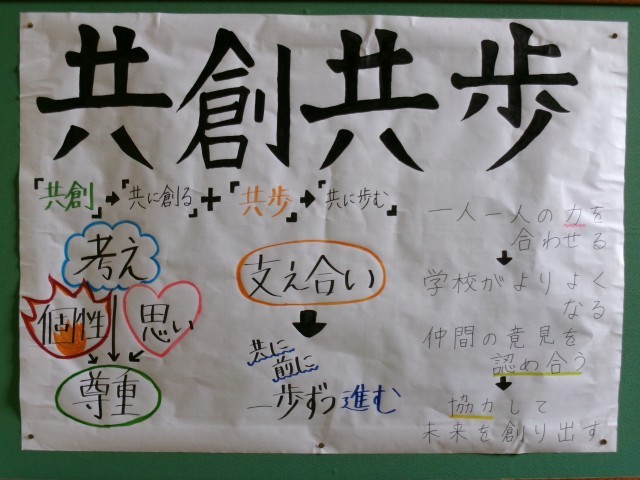 共創共歩
「共創」→「共に創る」+「共歩」→「共に歩む」
考え
個性
思い
尊重
支え合い
共に
前に
一歩ずつ進む
一人一人の力を
合わせる
学校がよりよく
なる
仲間の意見を
認め合う
協力して
未来を創り出す